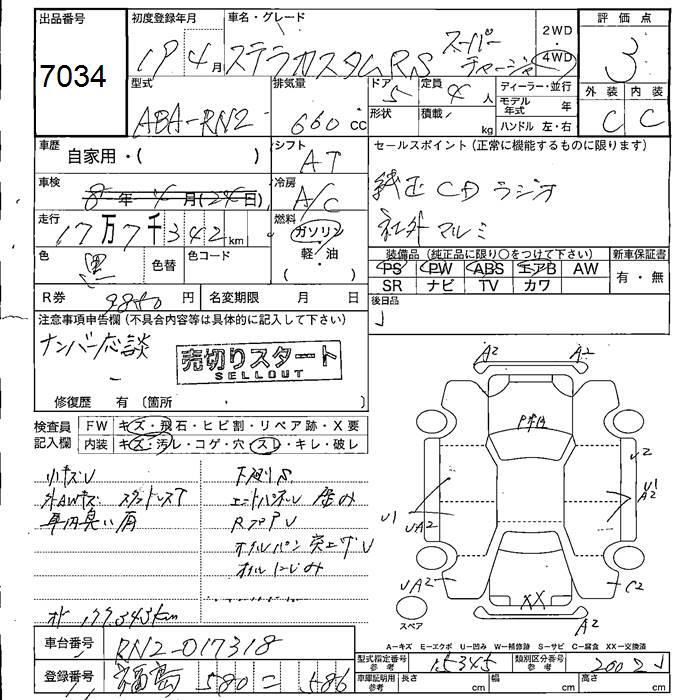 出品番号
7034
初度登録年月
19年4月
車名・グレード
ステラカスタムRS スーパーチャージャ
2WD・4WD
評価点
3
外装 内装
C C
型式
ABA-RN2
排気量
660cc
ドア
5
定員
4人
形状
積載 kg
ディーラー・並行
モデル年式 年
ハンドル 左・右
車歴
自家用・( )
シフト
AT
セールスポイント(正常に機能するものに限ります)
純正CDラジオ
社外マルミ
車検
8年4月(24日)
冷房
A/C
走行
17万7千342km
燃料
ガソリン・軽・油
色
黒
色替
色コード
装備品(純正品に限り○をつけて下さい)
PS PW ABS エアB AW
SR ナビ TV カワ
新車保証書
有・無
R券
9850円
名変期限 月 日
後日品
注意事項申告欄(不具合内容等は具体的に記入して下さい)
ナンバー応談
売切りスタート
SELLOUT
修復歴 有(箇所 )
検査員記入欄
FW キズ・飛石・ヒビ割・リペア跡・X要
内装 キズ・汚レ・コゲ・穴・スレ・キレ・破レ
小キズU
外AWキズ スタッドレスT
車内臭い有
下廻りS
エンドパネルU 歪み
RフロアU
オイルパン突上げU
オイルにじみ
メーター 177,343km
A2 A2
U2
U1
A2
U1
UA2
UA2
C2
XX
A2
スペア
A-キズ E-エクボ U-凹み W-補修跡 S-サビ C-腐食 XX-交換済
車台番号
RN2-017318
登録番号
福島 580 こ 586
型式指定番号参考
15345
類別区分番号参考
車庫証明用参考
長さ cm
幅 cm
高さ cm